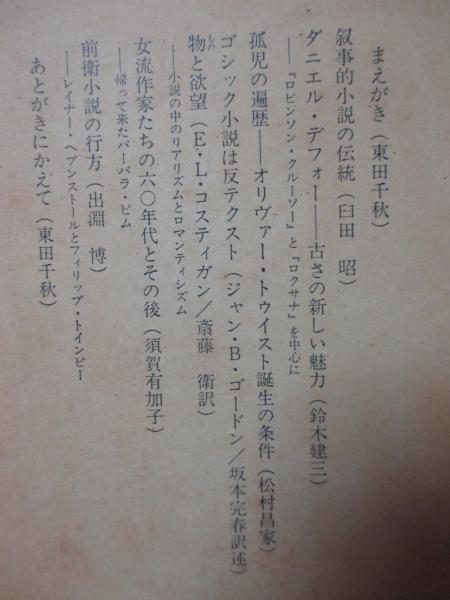 まえがき（東田千秋）
叙事的小説の伝統（臼田　昭）
ダニエル・デフォー――古さの新しい魅力（鈴木建三）
――『ロビンソン・クルーソー』と『ロクサナ』を中心に
孤児の遍歴――オリヴァー・トゥイスト誕生の条件（松村昌家）
ゴシック小説は反テクスト（ジャン・B・ゴードン／坂本完春訳述）
物と欲望（E・L・コスティガン／斎藤　衛訳）
もの
――小説の中のリアリズムとロマンティシズム
女流作家たちの六〇年代とその後（須賀有加子）
――帰って来たバーバラ・ピム
前衛小説の行方（出淵　博）
――レイナー・ヘプンストールとフィリップ・トインビー
あとがきにかえて（東田千秋）